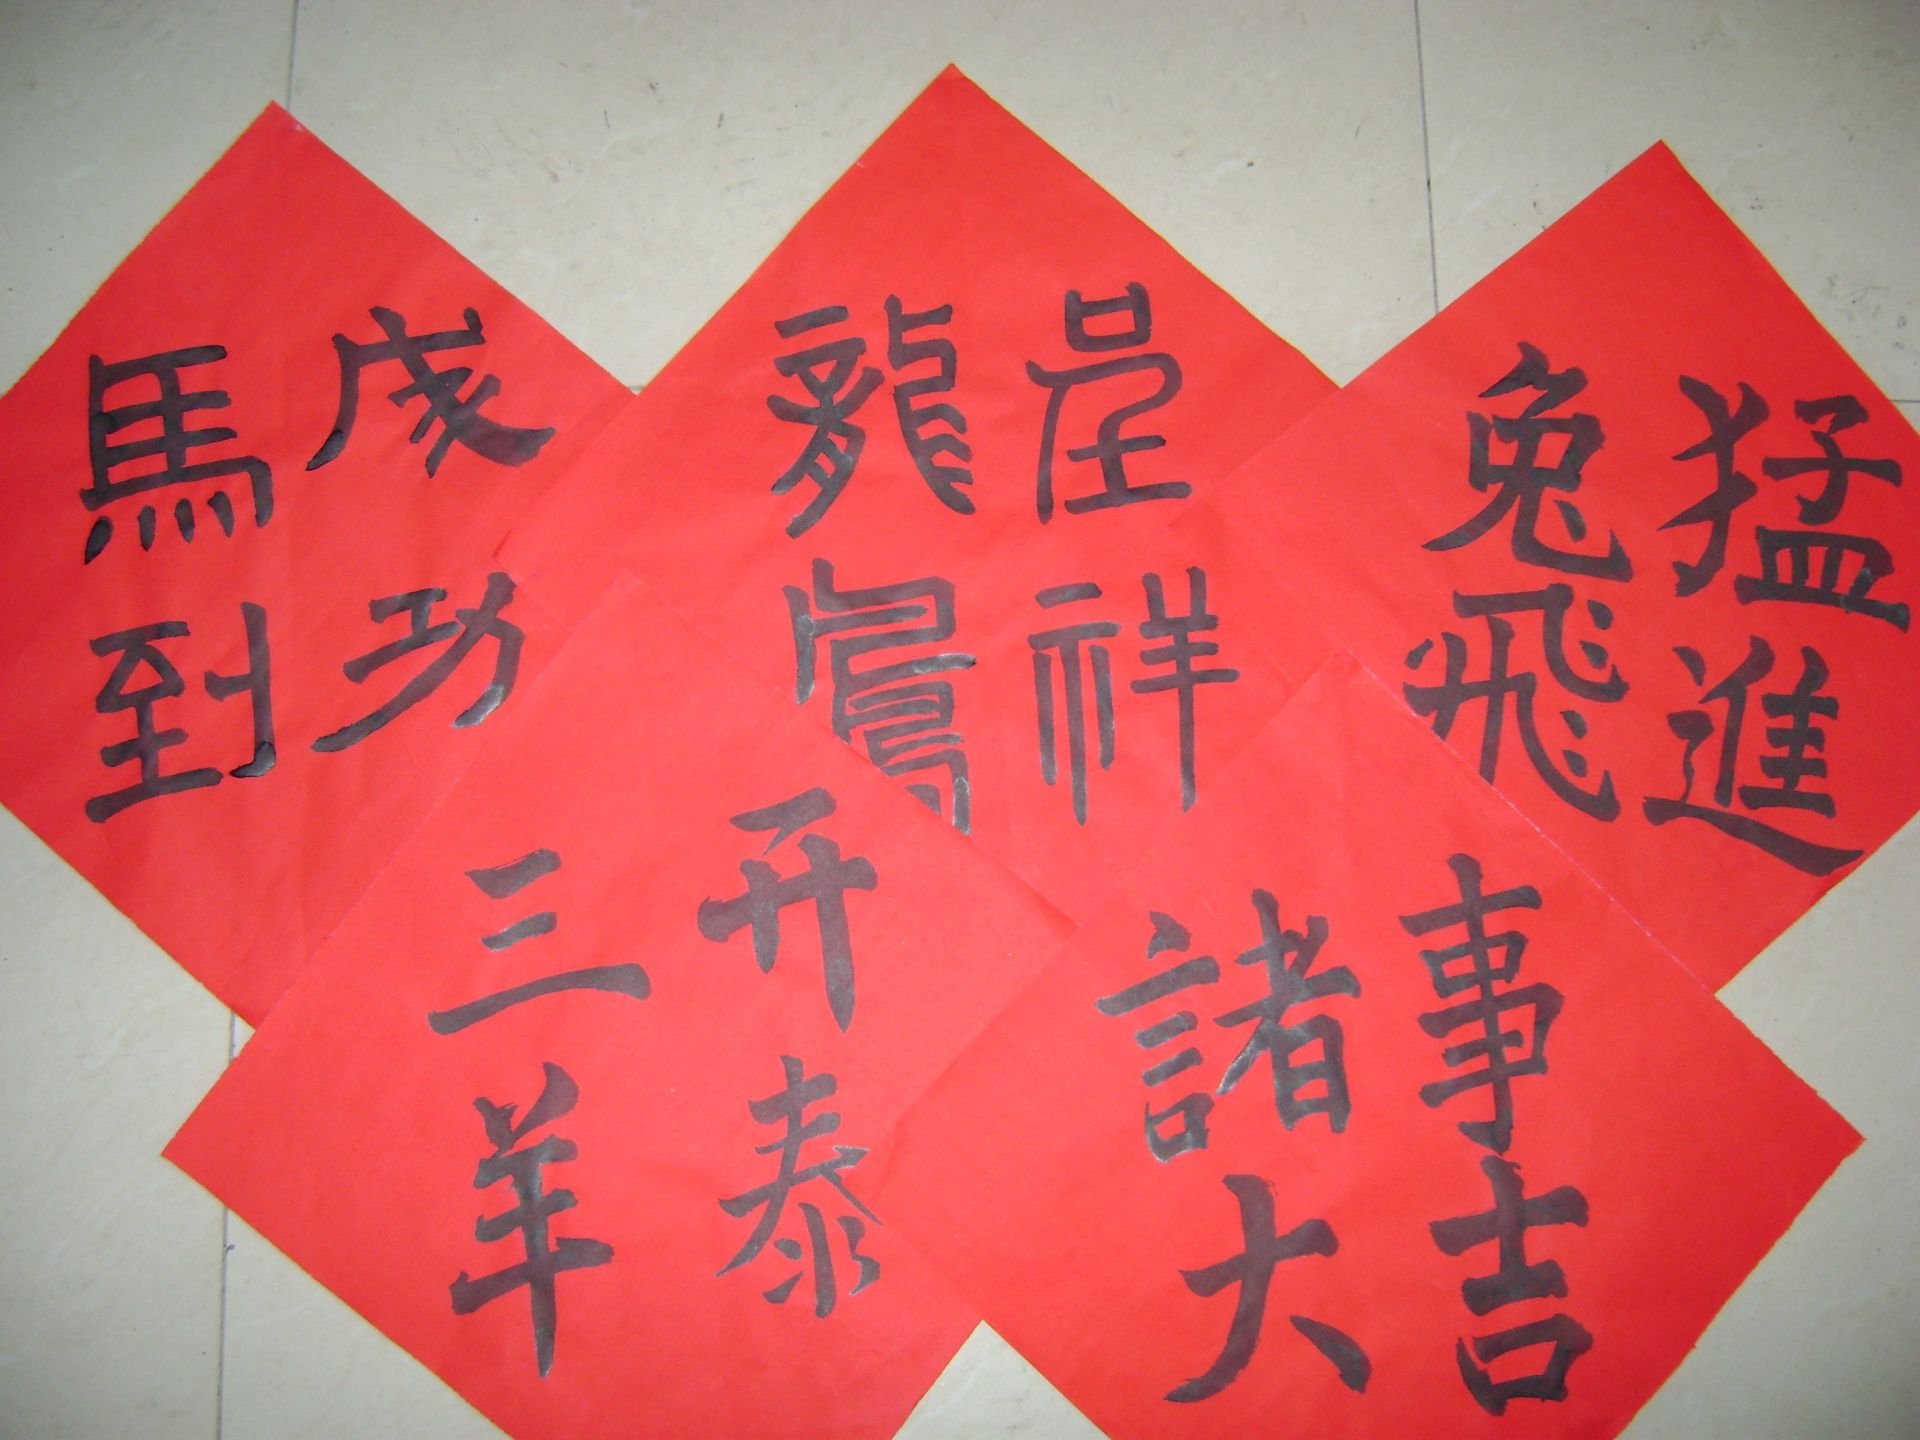 馬到
成功
龍鳳
呈祥
兔飛
猛進
三羊
开泰
諸事
大吉